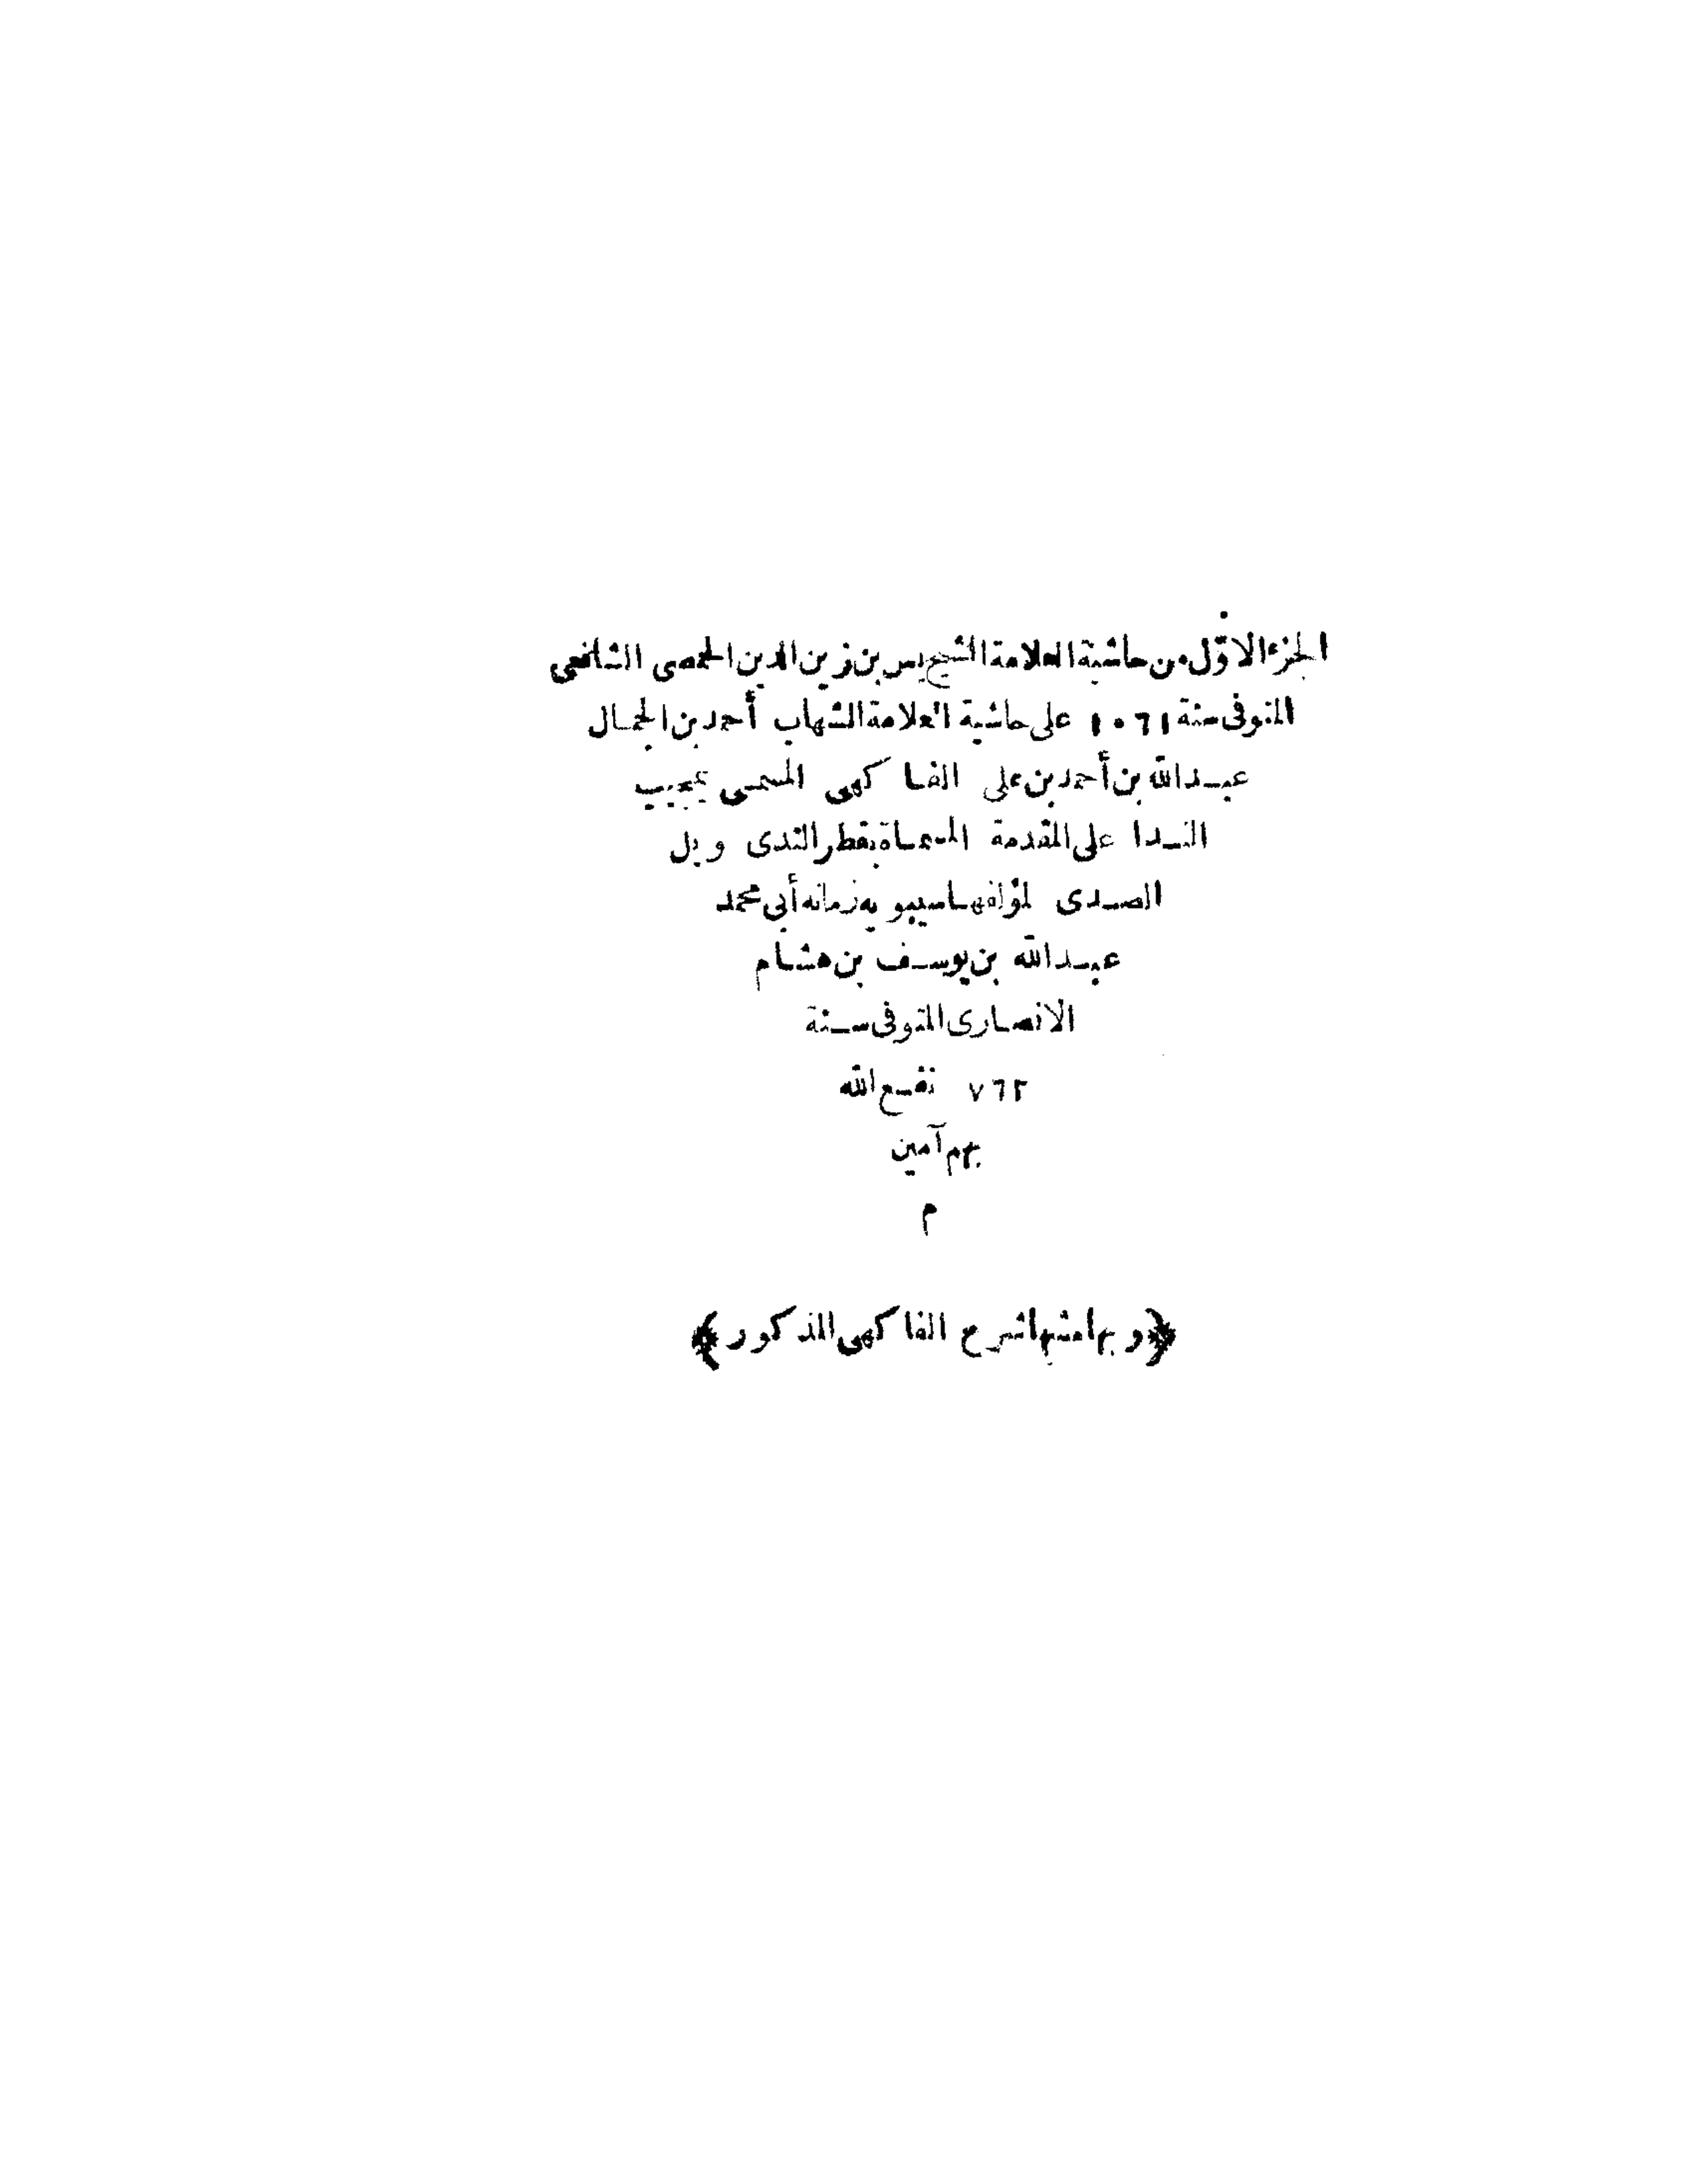 الجزء الاوّل من حاشية العلامة الشيخ يس بن زين الدين الحمصى الشافعى
المتوفى سنة ١٠٦١ على حاشية العلامة الشهاب أحمد بن الجمال
عبد الله بن أحمد بن على الفاكهى المسمى بمجيب
الندا على المقدمة المسماة بقطر الندى وبل
الصدى لمؤلفها سيبويه زمانه أبى محمد
عبد الله بن يوسف بن هشام
الانصارى المتوفى سنة
٧٦٢ نفع الله
بهم آمين
م
﴿وبهامشها شرح الفاكهى المذكور﴾